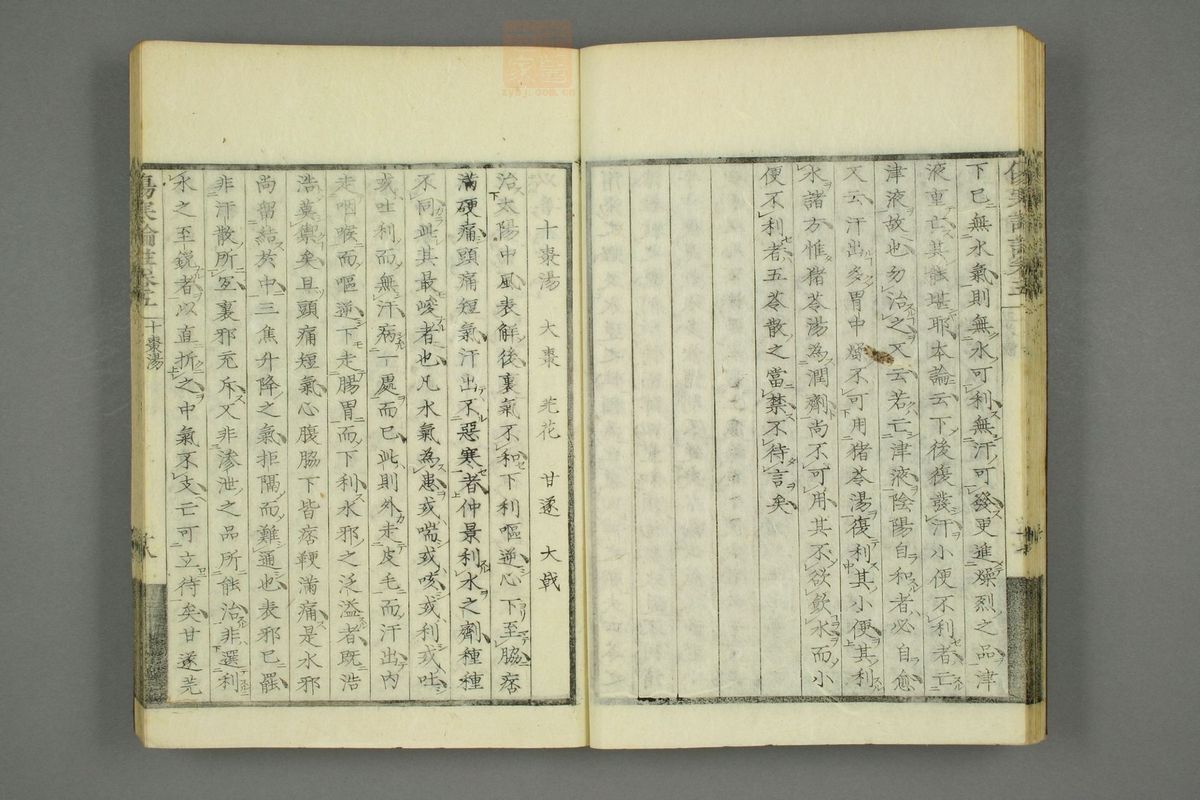 下已無水氣則無水可利無汗可發更進燥烈之品津
液重亡其能堪耶本論云下後復發汗小便不利者亡
津液故也勿治之又云若亡津液陰陽自和者必自愈
又云汗出多胃中燥不可用猪苓湯復利其小便其利
水諸方惟猪苓湯為潤劑尚不可用其不欲飲水而小
便不利者五苓散之當禁不待言矣
十棗湯　大棗　芫花　甘遂　大戟
治太陽中風表解後裏氣不和下利嘔逆心下至脇痞
滿硬痛頭痛短氣汗出不惡寒者仲景利水之劑種種
不同此其最峻者也凡水氣為患或喘或咳或利或吐
或吐利而無汗病一處而已此則外走皮毛而汗出内
走咽喉而嘔逆下走腸胃而下利水邪之泛溢者既浩
浩莫禦矣且頭痛短氣心腹脇下皆痞鞕滿痛是水邪
尚留結於中三焦升降之氣拒隔而難通也表邪已罷
非汗散所宜裏邪充斥又非滲泄之品所能治非選利
水之至銳者以直折之中氣不支亡可立待矣甘遂芫
傷寒論註卷五
十棗湯
十八
zybj.com.cn